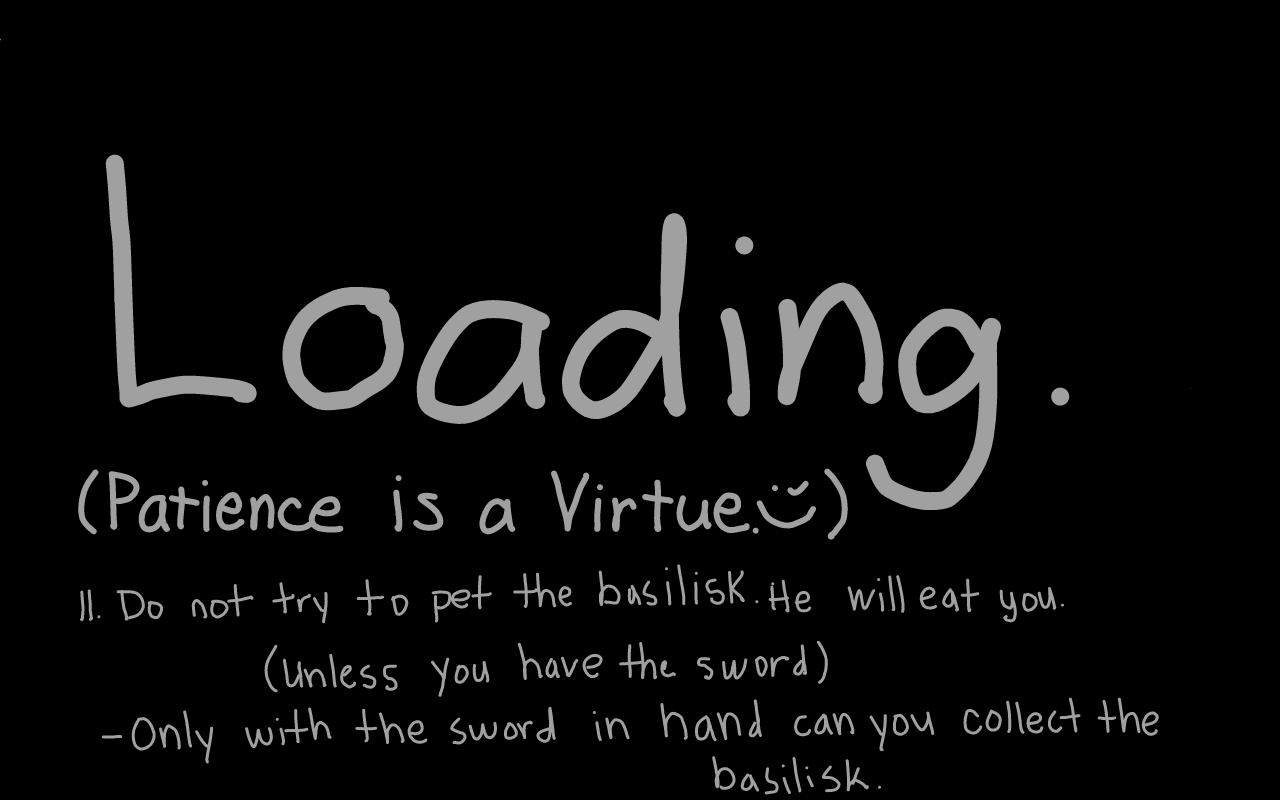 Loading.
(Patience is a Virtue.☺)
11. Do not try to pet the basilisk. He will eat you.
(Unless you have the sword)
-Only with the sword in hand can you collect the
basilisk.